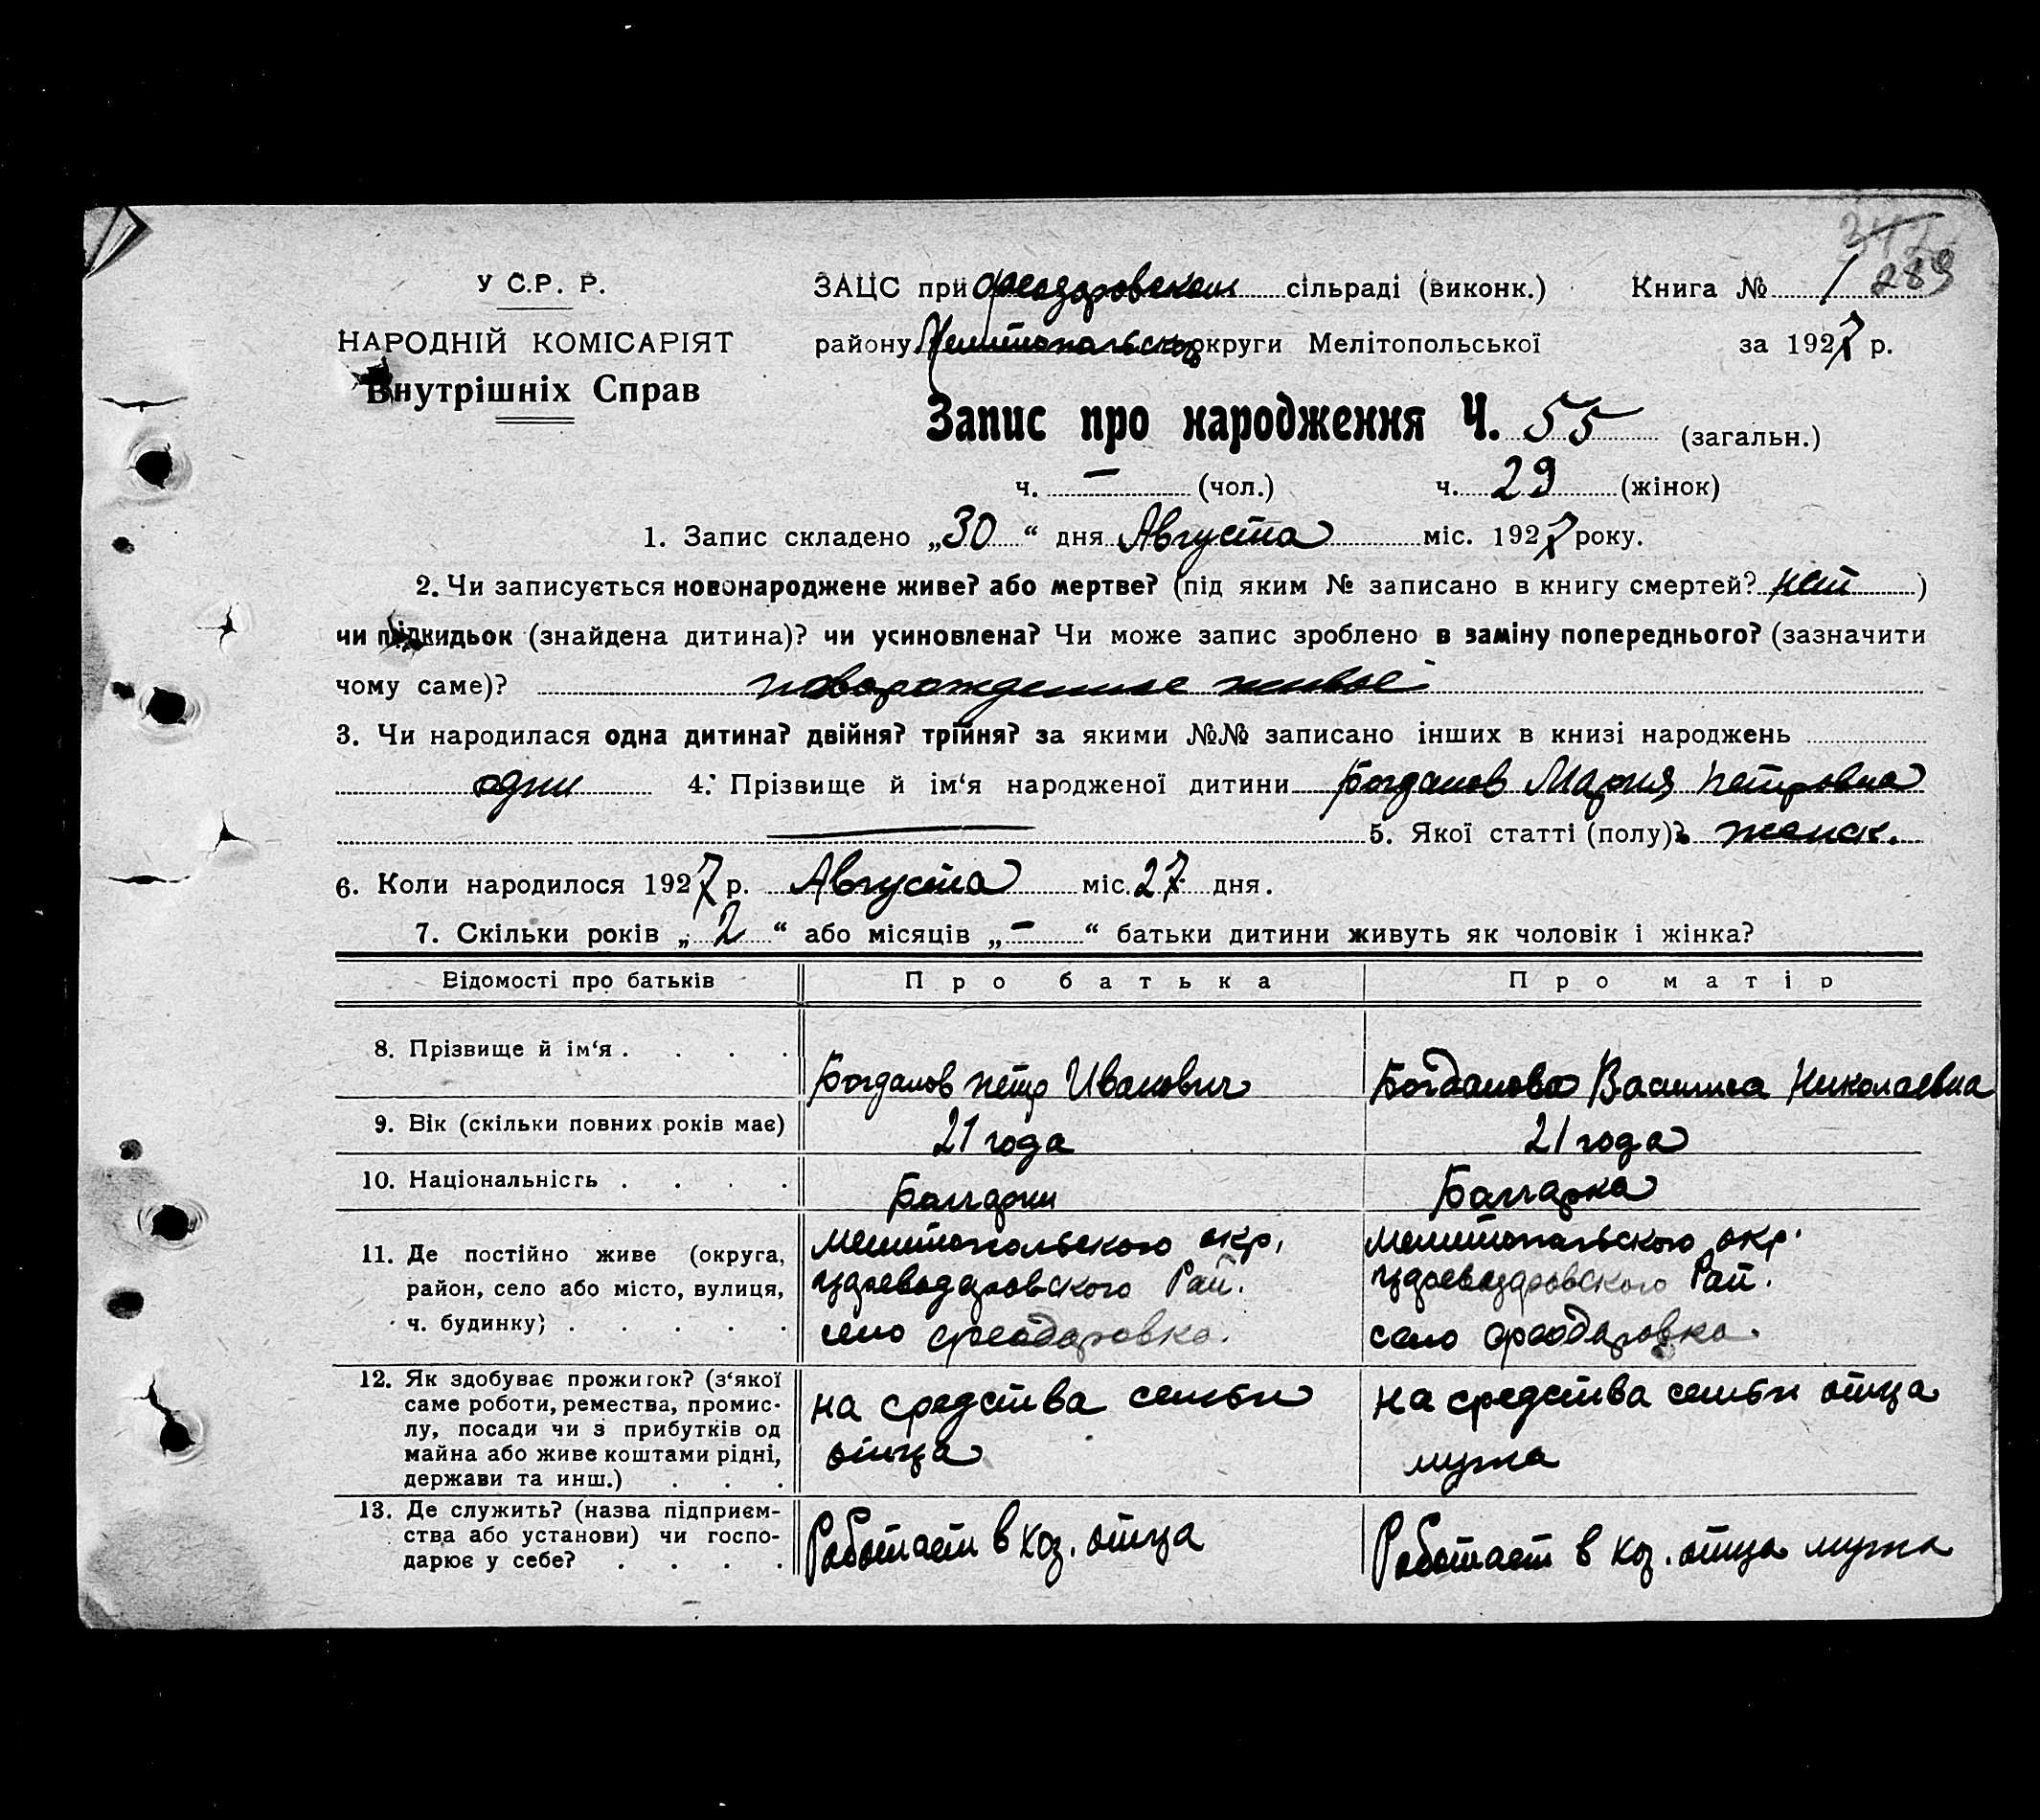 342
289
У С.Р. Р.
ЗАЦС при Феодоровском сільраді (виконк.) Книга № 1
НАРОДНІЙ КОМІСАРІЯТ
району Мелитопольской округи Мелітопольської за 1927 р.
Внутрішніх Справ
Запис про народження Ч. 55 (загальн.)
ч. — (чол.) ч. 29 (жінок)
1. Запис складено „30“ дня Августа міс. 1927 року.
2. Чи записується новонароджене живе? або мертве? (під яким № записано в книгу смертей? нет)
чи підкидьок (знайдена дитина)? чи усиновлена? Чи може запис зроблено в заміну попереднього? (зазначити
чому саме)? новорожденное живое
3. Чи народилася одна дитина? двійня? трійня? за якими №№ записано інших в книзі народжень
одни 4. Прізвище й ім‘я народженої дитини Богданов Мария Петровна
5. Якої статті (полу)? женск.
6. Коли народилося 1927 р. Августа міс. 27 дня.
7. Скільки років „2“ або місяців „—“ батьки дитини живуть як чоловік і жінка?
Відомості про батьків Про батька Про матір
8. Прізвище й ім‘я . . . . Богданов Петр Иванович Богданова Василиса Николаевна
9. Вік (скільки повних років має) 21 года 21 года
10. Національність . . . . Болгарин Болгарка
11. Де постійно живе (округа, Мелитопольского окр, Мелитопольского окр.
район, село або місто, вулиця, Цареводаровского Рай. Цареводаровского Рай.
ч. будинку) . . . . . село Феодоровка. село Феодоровка.
12. Як здобуває прожиток? (з‘якої
саме роботи, ремества, промис-
лу, посади чи з прибутків од
майна або живе коштами рідні,
держави та инш.) . . .
на средства семьи
отца
на средства семьи отца
мужа
13. Де служить? (назва підприєм-
ства або установи) чи госпо-
дарює у себе? . . . .
Работает в хоз. отца
Работает в хоз. отца мужа